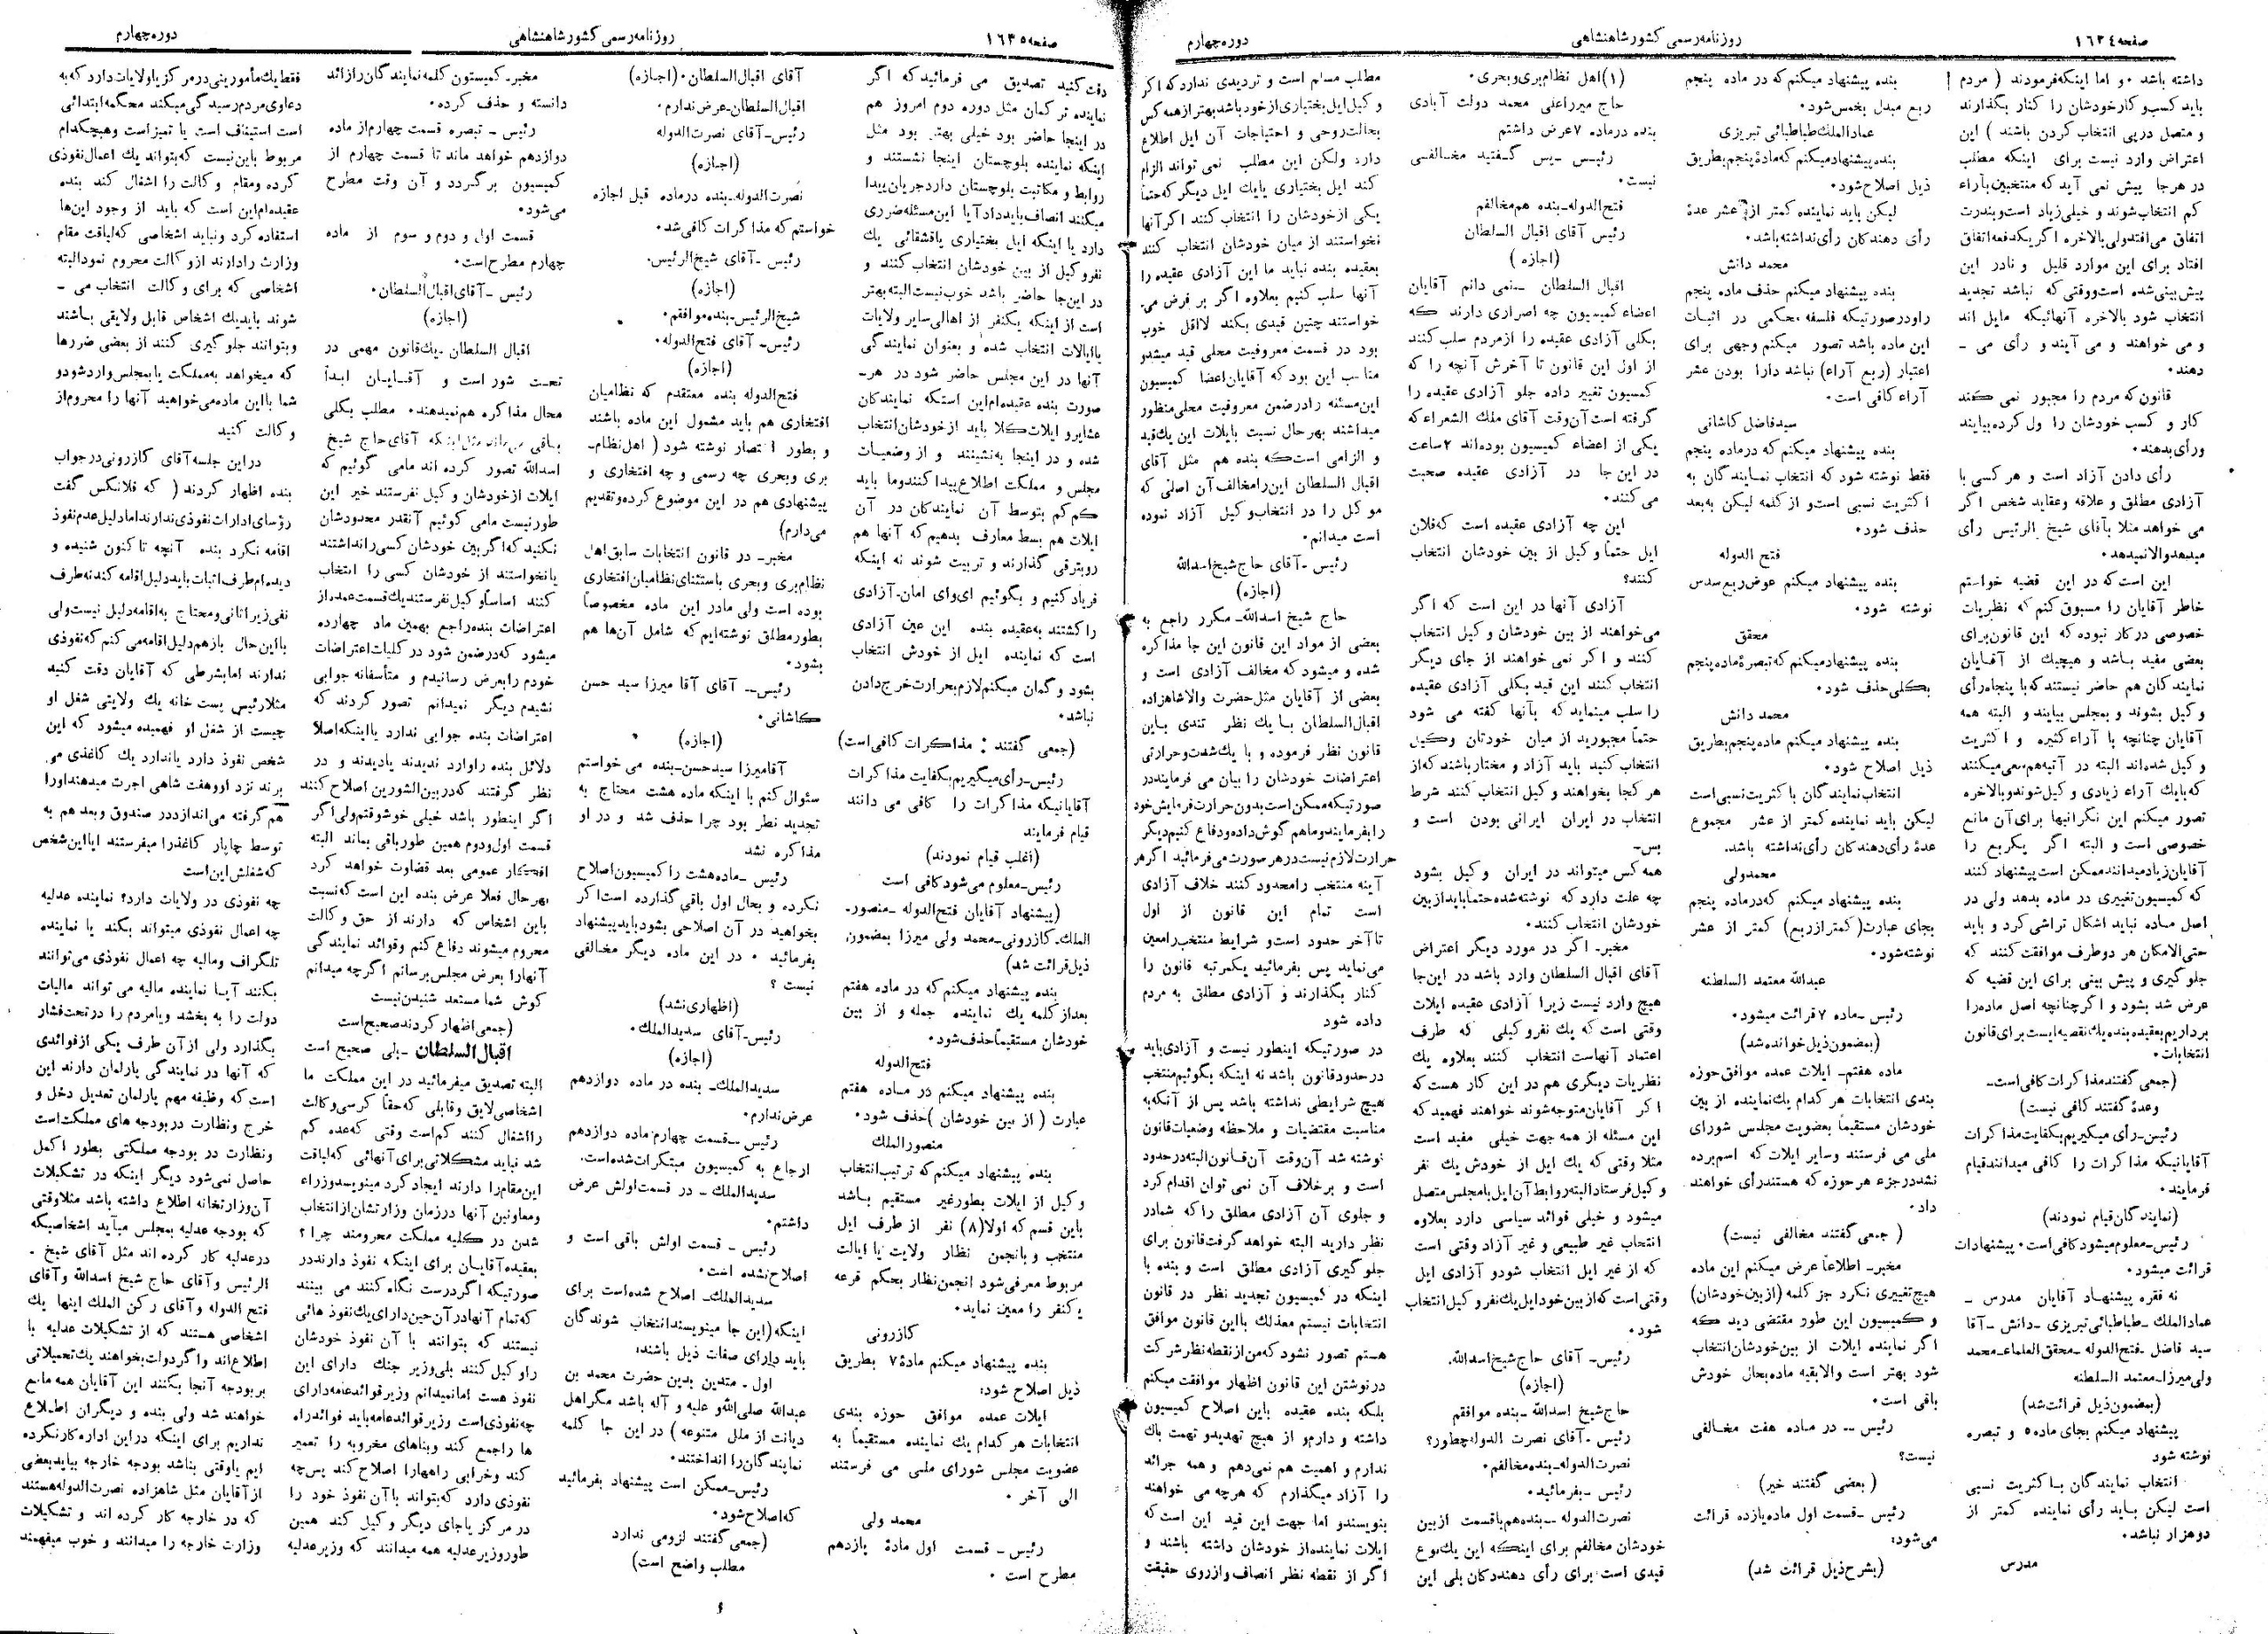 صفحه ۱۶۳۴
روزنامه رسمی کشور شاهنشاهی
دوره چهارم
داشته باشد . و اما اینکه فرمودند ( مردم
باید کسب و کار خودشان را کنار بگذارند
و متصل در پی انتخاب کردن باشند ) این
اعتراض وارد نیست برای اینکه مطلب
در هر جا پیش نمی آید که منتخبین بآراء
کم انتخاب شوند و خیلی زیاد است و بندرت
اتفاق می افتد ولی بالاخره اگر یکدفعه اتفاق
افتاد برای این موارد قلیل و نادر این
پیش بینی شده است و وقتی که نباشد تجدید
انتخاب شود بالاخره آنهائیکه مایل اند
و می خواهند و می آیند و رأی می -
دهند .
قانون که مردم را مجبور نمی کند
کار و کسب خودشان را ول کرده بیایند
و رأی بدهند .
رأی دادن آزاد است و هر کسی با
آزادی مطلق و علاقه و عقاید شخص اگر
می خواهد مثلا بآقای شیخ الرئیس رأی
میدهد والا نمیدهد .
این است که در این قضیه خواستم
خاطر آقایان را مسبوق کنم که نظریات
خصوصی در کار نبوده که این قانون برای
بعضی مفید باشد و هیچیک از آقایان
نمایندگان هم حاضر نیستند که با پنجاه رأی
وکیل بشوند و بمجلس بیایند و البته همه
آقایان چنانچه با آراء کثیره و اکثریت
وکیل شده اند البته در آتیه هم سعی میکنند
که با یک آراء زیادی وکیل شوند و بالاخره
تصور میکنم این نگرانیها برای آن مانع
خصوصی است و البته اگر یک ربع را
آقایان زیاد میدانند ممکن است پیشنهاد کنند
که کمیسیون تغییری در ماده بدهد ولی در
اصل ماده نباید اشکال تراشی کرد و باید
حتی الامکان هر دو طرف موافقت کنند که
جلوگیری و پیش بینی برای این قضیه که
عرض شد بشود و اگر چنانچه اصل ماده را
برداریم بعقیده بنده یک نقصیه ایست برای قانون
انتخابات .
(جمعی گفتند مذاکرات کافی است -
وعدهٔ گفتند کافی نیست)
رئیس - رأی میگیریم بکفایت مذاکرات
آقایانیکه مذاکرات را کافی میدانند قیام
فرمایند .
(نمایندگان قیام نمودند)
رئیس - معلوم میشود کافی است . پیشنهادات
قرائت میشود .
نه فقره پیشنهاد آقایان مدرس -
عماد الملک - طباطبائی تبریزی - دانش - آقا
سید فاضل - فتح الدوله - محقق العلماء - محمد
ولی میرزا - معتمد السلطنه
(بمضمون ذیل قرائت شد)
پیشنهاد میکنم بجای ماده ۵ و تبصره
نوشته شود
انتخاب نمایندگان با کثریت نسبی
است لیکن باید رأی نماینده کمتر از
دو هزار نباشد .
مدرس
بنده پیشنهاد میکنم که در ماده پنجم
ربع مبدل بخمس شود .
عماد الملک طباطبائی تبریزی
بنده پیشنهاد میکنم که مادهٔ پنجم بطریق
ذیل اصلاح شود .
لیکن باید نماینده کمتر از عشر عدهٔ
رأی دهندگان رأی نداشته باشد .
محمد دانش
بنده پیشنهاد میکنم حذف ماده پنجم
را و در صورتیکه فلسفه محکمی در اثبات
این ماده باشد تصور میکنم وجهی برای
اعتبار (ربع آراء) نباشد دارا بودن عشر
آراء کافی است .
سید فاضل کاشانی
بنده پیشنهاد میکنم که در ماده پنجم
فقط نوشته شود که انتخاب نمایندگان به
اکثریت نسبی است و از کلمه لیکن به بعد
حذف شود .
فتح الدوله
بنده پیشنهاد میکنم عوض ربع سدس
نوشته شود .
محقق
بنده پیشنهاد میکنم که تبصرهٔ ماده پنجم
بکلی حذف شود .
محمد دانش
بنده پیشنهاد میکنم ماده پنجم بطریق
ذیل اصلاح شود .
انتخاب نمایندگان باکثریت نسبی است
لیکن باید نماینده کمتر از عشر مجموع
عدهٔ رأی دهندگان رأی نداشته باشد.
محمد ولی
بنده پیشنهاد میکنم که در ماده پنجم
بجای عبارت (کمتر از ربع) کمتر از عشر
نوشته شود .
عبدالله معتمد السلطنه
رئیس - ماده ۷ قرائت میشود .
(بمضمون ذیل خوانده شد)
ماده هفتم - ایلات عمده موافق حوزه
بندی انتخابات هر کدام یک نماینده از بین
خودشان مستقیماً بعضویت مجلس شورای
ملی می فرستند و سایر ایلات که اسم برده
نشد در جزء هر حوزه که هستند رأی خواهند
داد .
( جمعی گفتند مخالفی نیست)
مخبر - اطلاعاً عرض میکنم این ماده
هیچ تغییری نکرد جز کلمه (از بین خودشان)
و کمیسیون این طور مقتضی دید که
اگر نماینده ایلات از بین خودشان انتخاب
شود بهتر است والا بقیه ماده بحال خودش
باقی است .
رئیس -- در ماده هفت مخالفی
نیست؟
( بعضی گفتند خیر)
رئیس - قسمت اول ماده یازده قرائت
می شود:
(بشرح ذیل قرائت شد)
(۱) اهل نظام بری و بحری .
حاج میرزا علی محمد دولت آبادی
بنده در ماده ۷ عرض داشتم
رئیس - پس گفتید مخالفی
نیست .
فتح الدوله - بنده هم مخالفم
رئیس آقای اقبال السلطان
(اجازه )
اقبال السلطان - نمی دانم آقایان
اعضاء کمیسیون چه اصراری دارند که
بکلی آزادی عقیده را از مردم سلب کنند
از اول این قانون تا آخرش آنچه را که
کمسیون تغییر داده جلو آزادی عقیده را
گرفته است آن وقت آقای ملک الشعراء که
یکی از اعضاء کمیسیون بوده اند ۲ ساعت
در این جا در آزادی عقیده صحبت
می کنند .
این چه آزادی عقیده است که فلان
ایل حتماً وکیل از بین خودشان انتخاب
کنند؟
آزادی آنها در این است که اگر
می خواهند از بین خودشان وکیل انتخاب
کنند و اگر نمی خواهند از جای دیگر
انتخاب کنند این قید بکلی آزادی عقیده
را سلب مینماید که بآنها گفته می شود
حتماً مجبورید از میان خودتان وکیل
انتخاب کنید باید آزاد و مختار باشند که از
هر کجا بخواهند وکیل انتخاب کنند شرط
انتخاب در ایران ایرانی بودن است و
بس -
همه کس میتواند در ایران وکیل بشود
چه علت دارد که نوشته شده حتماً باید از بین
خودشان انتخاب کنند .
مخبر - اگر در مورد دیگر اعتراض
آقای اقبال السلطان وارد باشد در این جا
هیچ وارد نیست زیرا آزادی عقیده ایلات
وقتی است که یک نفر وکیلی که طرف
اعتماد آنهاست انتخاب کنند بعلاوه یک
نظریات دیگری هم در این کار هست که
اگر آقایان متوجه شوند خواهند فهمید که
این مسئله از همه جهت خیلی مفید است
مثلا وقتی که یک ایل از خودش یک نفر
وکیل فرستاد البته روابط آن ایل با مجلس متصل
میشود و خیلی فوائد سیاسی دارد بعلاوه
انتخاب غیر طبیعی و غیر آزاد وقتی است
که از غیر ایل انتخاب شود و آزادی ایل
وقتی است که از بین خود ایل یک نفر وکیل انتخاب
شود .
رئیس - آقای حاج شیخ اسدالله.
(اجازه)
حاج شیخ اسدالله - بنده موافقم
رئیس - آقای نصرت الدوله چطور؟
نصرت الدوله - بنده مخالفم .
رئیس - بفرمائید .
نصرت الدوله - بنده هم با قسمت از بین
خودشان مخالفم برای اینکه این یک نوع
قیدی است برای رأی دهندگان بلی این
مطلب مسلم است و تردیدی ندارد که اگر
وکیل ایل بختیاری از خود باشد بهتر از همه کس
بحالت روحی و احتیاجات آن ایل اطلاع
دارد ولکن این مطلب نمی تواند الزام
کند ایل بختیاری یا یک ایل دیگر که حتماً
یکی از خودشان را انتخاب کنند اگر آنها
نخواستند از میان خودشان انتخاب کنند
بعقیده بنده نباید ما این آزادی عقیده را
از آنها سلب کنیم بعلاوه اگر بر فرض می -
خواستند چنین قیدی بکند لااقل خوب
بود در قسمت معروفیت محلی قید میشد و
مناسب این بود که آقایان اعضا کمیسیون
این مسئله را در ضمن معروفیت محلی منظور
میداشتند بهر حال نسبت بایلات این یک قید
و الزامی است که بنده هم مثل آقای
اقبال السلطان این را مخالف آن اصلی که
موکل را در انتخاب وکیل آزاد نموده
است میدانم .
رئیس - آقای حاج شیخ اسدالله
(اجازه)
حاج شیخ اسدالله - مکرر راجع به
بعضی از مواد این قانون این جا مذاکره
شده و میشود که مخالف آزادی است و
بعضی از آقایان مثل حضرت والا شاهزاده
اقبال السلطان با یک نظر تندی باین
قانون نظر فرموده و با یک شدت و حرارتی
اعتراضات خودشان را بیان می فرمایند در
صورتیکه ممکن است بدون حرارت فرمایش خود
را بفرمایند و ما هم گوش داده و دفاع کنیم دیگر
حرارت لازم نیست در هر صورت می فرمائید اگر هر
آینه منتخب را محدود کنند خلاف آزادی
است تمام این قانون از اول
تا آخر حدود است و شرایط منتخب را معین
می نماید پس بفرمائید یکمرتبه قانون را
کنار بگذارند و آزادی مطلق به مردم
داده شود
در صورتیکه اینطور نیست و آزادی باید
در حدود قانون باشد نه اینکه بگوئیم منتخب
هیچ شرایطی نداشته باشد پس از آنکه به
مناسبت مقتضیات و ملاحظه وضعیات قانون
نوشته شد آن وقت آن قانون البته در حدود
است و بر خلاف آن نمی توان اقدام کرد
و جلوی آن آزادی مطلق را که شما در
نظر دارید البته خواهد گرفت قانون برای
جلوگیری آزادی مطلق است و بنده با
اینکه در کمیسیون تجدید نظر در قانون
انتخابات نیستم معذلک با این قانون موافق
هستم تصور نشود که من از نقطه نظر شرکت
در نوشتن این قانون اظهار موافقت میکنم
بلکه بنده عقیده باین اصلاح کمیسیون
داشته و دارم و از هیچ تهدید و تهمت باک
ندارم و اهمیت هم نمی دهم و همه جرائد
را آزاد میگذارم که هر چه می خواهند
بنویسند و اما جهت این قید این است که
ایلات نماینده از خودشان داشته باشند و
اگر از نقطه نظر انصاف و از روی حقیقت
صفحه ۱۶۳۵
روزنامه رسمی کشور شاهنشاهی
دوره چهارم
دقت کنید تصدیق می فرمائید که اگر
نماینده ترکمان مثل دوره دوم امروز هم
در اینجا حاضر بود خیلی بهتر بود مثل
اینکه نماینده بلوچستان اینجا نشستند و
روابط و مکاتبت بلوچستان دارد جریان پیدا
میکنند انصاف باید داد آیا این مسئله ضرری
دارد یا اینکه ایل بختیاری یا قشقائی یک
نفر وکیل از بین خودشان انتخاب کنند و
در این جا حاضر باشد خوب نیست البته بهتر
است از اینکه یکنفر از اهالی سایر ولایات
یا ایالات انتخاب شده و بعنوان نمایندگی
آنها در این مجلس حاضر شود در هر -
صورت بنده عقیده ام این استکه نمایندگان
عشایر و ایلات کلا باید از خودشان انتخاب
شده و در اینجا به نشینند و از وضعیات
مجلس و مملکت اطلاع پیدا کنند و ما باید
کم کم بتوسط آن نمایندگان در آن
ایلات هم بسط معارف بدهیم که آنها هم
رو بترقی گذارند و تربیت شوند نه اینکه
فریاد کنیم و بگوئیم ای وای امان - آزادی
را کشتند به عقیده بنده این عین آزادی
است که نماینده ایل از خودش انتخاب
بشود و گمان میکنم لازم بحرارت خرج دادن
نباشد .
(جمعی گفتند : مذاکرات کافی است)
رئیس - رأی میگیریم بکفایت مذاکرات
آقایانیکه مذاکرات را کافی می دانند
قیام فرمایند
(اغلب قیام نمودند)
رئیس - معلوم می شود کافی است
(پیشنهاد آقایان فتح الدوله - منصور -
الملک - کازرونی - محمد ولی میرزا بمضمون
ذیل قرائت شد)
بنده پیشنهاد میکنم که در ماده هفتم
بعد از کلمه یک نماینده جمله و از بین
خودشان مستقیماً حذف شود .
فتح الدوله
بنده پیشنهاد میکنم در ماده هفتم
عبارت ( از بین خودشان ) حذف شود .
منصور الملک
بنده پیشنهاد میکنم که ترتیب انتخاب
وکیل از ایلات بطور غیر مستقیم باشد
باین قسم که اولا (۸) نفر از طرف ایل
منتخب و بانجمن نظار ولایت یا ایالت
مربوط معرفی شود انجمن نظار بحکم قرعه
یکنفر را معین نماید .
کازرونی
بنده پیشنهاد میکنم مادهٔ ۷ بطریق
ذیل اصلاح شود:
ایلات عمده موافق حوزه بندی
انتخابات هر کدام یک نماینده مستقیماً به
عضویت مجلس شورای ملی می فرستند
الی آخر .
محمد ولی
رئیس - قسمت اول مادهٔ یازدهم
مطرح است .
آقای اقبال السلطان . (اجازه)
اقبال السلطان - عرض ندارم .
رئیس - آقای نصرت الدوله
(اجازه)
نصرت الدوله - بنده در ماده قبل اجازه
خواستم که مذاکرات کافی شد .
رئیس - آقای شیخ الرئیس.
(اجازه)
شیخ الرئیس - بنده موافقم .
رئیس - آقای فتح الدوله .
(اجازه)
فتح الدوله بنده معتقدم که نظامیان
افتخاری هم باید مشمول این ماده باشند
و بطور اختصار نوشته شود ( اهل نظام -
بری و بحری چه رسمی و چه افتخاری و
پیشنهادی هم در این موضوع کرده و تقدیم
می دارم)
مخبر - در قانون انتخابات سابق اهل
نظام بری و بحری باستثنای نظامیان افتخاری
بوده است ولی ما در این ماده مخصوصاً
بطور مطلق نوشته ایم که شامل آن ها هم
بشود .
رئیس - آقای آقا میرزا سید حسن
کاشانی .
(اجازه)
آقا میرزا سید حسن - بنده می خواستم
سئوال کنم با اینکه ماده هشت محتاج به
تجدید نظر بود چرا حذف شد و در او
مذاکره نشد
رئیس - ماده هشت را کمیسیون اصلاح
نکرده و بحال اول باقی گذارده است اگر
بخواهید در آن اصلاحی بشود باید پیشنهاد
بفرمائید . در این ماده دیگر مخالفی
نیست ؟
(اظهاری نشد)
رئیس - آقای سدید الملک .
(اجازه)
سدید الملک - بنده در ماده دوازدهم
عرض ندارم .
رئیس - قسمت چهارم ماده دوازدهم
ارجاع به کمیسیون مبتکرات شده است.
سدید الملک - در قسمت اولش عرض
داشتم .
رئیس - قسمت اولش باقی است و
اصلاح نشده است .
سدید الملک - اصلاح شده است برای
اینکه (این جا مینویسند انتخاب شوندگان
باید دارای صفات ذیل باشند:
اول - متدین بدین حضرت محمد بن
عبدالله صلی الله و علیه و آله باشد مگر اهل
دیانت از ملل متنوعه ) در این جا کلمه
نمایندگان را انداختند .
رئیس - ممکن است پیشنهاد بفرمائید
که اصلاح شود .
(جمعی گفتند لزومی ندارد
مطلب واضح است)
مخبر - کمیسیون کلمه نمایندگان را زائد
دانسته و حذف کرده .
رئیس - تبصره قسمت چهارم از ماده
دوازدهم خواهد ماند تا قسمت چهارم از
کمیسیون برگردد و آن وقت مطرح
می شود .
قسمت اول و دوم و سوم از ماده
چهارم مطرح است .
رئیس - آقای اقبال السلطان .
(اجازه)
اقبال السلطان - یک قانون مهمی در
تحت شور است و آقایان ابداً
مجال مذاکره هم نمیدهند . مطلب بکلی
باقی می ماند مثل اینکه آقای حاج شیخ
اسدالله تصور کرده اند ما می گوئیم که
ایلات از خودشان وکیل نفرستند خیر این
طور نیست ما می گوئیم آنقدر محدودشان
نکنید که اگر بین خودشان کسی را نداشتند
یا نخواستند از خودشان کسی را انتخاب
کنند اساساً وکیل نفرستند یک قسمت عمده از
اعتراضات بنده راجع بهمین ماد چهارده
میشود که در ضمن شور در کلیات اعتراضات
خودم را بعرض رسانیدم و متأسفانه جوابی
نشیدم دیگر نمیدانم تصور کردند که
اعتراضات بنده جوابی ندارد یا اینکه اصلاً
دلائل بنده را وارد ندیدند یا دیدند و در
نظر گرفتند که در بین الشورین اصلاح کنند
اگر اینطور باشد خیلی خوشوقتم ولی اگر
قسمت اول و دوم همین طور باقی بماند البته
افکار عمومی بعد قضاوت خواهد کرد
بهر حال فعلا عرض بنده این است که نسبت
باین اشخاص که دارند از حق وکالت
محروم میشوند دفاع کنم و فوائد نمایندگی
آنها را بعرض مجلس برسانم اگر چه میدانم
گوش شما مستعد شنیدن نیست
(جمعی اظهار کردند صحیح است
اقبال السلطان - بلی صحیح است
البته تصدیق میفرمائید در این مملکت ما
اشخاصی لایق و قابلی که حقاً کرسی وکالت
را اشغال کنند کم است وقتی که عده کم
شد نباید مشکلاتی برای آنهائی که لیاقت
این مقام را دارند ایجاد کرد مینویسد وزراء
و معاونین آنها در زمان وزارتشان از انتخاب
شدن در کلیه مملکت محرومند چرا ؟
بعقیده آقایان برای اینکه نفوذ دارند در
صورتیکه اگر درست نگاه کنند می بینند
که تمام آنها در آن حین دارای یک نفوذ هائی
نیستند که بتوانند با آن نفوذ خودشان
را وکیل کنند بلی وزیر جنگ دارای این
نفوذ هست اما نمیدانم وزیر فوائد عامه دارای
چه نفوذی است وزیر فوائد عامه باید فوائد راه
ها را جمع کند و بناهای مخروبه را تعمیر
کند و خرابی راهها را اصلاح کند پس چه
نفوذی دارد که بتواند با آن نفوذ خود را
در مرکز یا جای دیگر وکیل کند همین
طور وزیر عدلیه همه میدانند که وزیر عدلیه
فقط یک مأمورینی در مرکز یا ولایات دارد که به
دعاوی مردم رسیدگی میکند محکمه ابتدائی
است استیناف است یا تمیز است و هیچکدام
مربوط باین نیست که بتواند یک اعمال نفوذی
کرده و مقام وکالت را اشغال کند بنده
عقیده ام این است که باید از وجود این ها
استفاده کرد و نباید اشخاصی که لیاقت مقام
وزارت را دارند از وکالت محروم نمود البته
اشخاصی که برای وکالت انتخاب می -
شوند باید یک اشخاص قابل و لایقی باشند
و بتوانند جلوگیری کنند از بعضی ضررها
که میخواهد به مملکت یا بمجلس وارد شود و
شما با این ماده می خواهید آنها را محروم از
وکالت کنید
در این جلسه آقای کازرونی در جواب
بنده اظهار کردند ( که فلانکس گفت
رؤسای ادارات نفوذی ندارند اما دلیل عدم نفوذ
اقامه نکرد بنده آنچه تا کنون شنیده و
دیده ام طرف اثبات باید دلیل اقامه کند نه طرف
نفی زیرا نافی محتاج به اقامه دلیل نیست ولی
با این حال باز هم دلیل اقامه می کنم که نفوذی
ندارند اما بشرطی که آقایان دقت کنید
مثلا رئیس پست خانه یک ولایتی شغل او
چیست از شغل او فهمیده میشود که این
شخص نفوذ دارد یا ندارد یک کاغذی می
برند نزد او و هفت شاهی اجرت میدهند او را
هم گرفته می اندازد در صندوق و بعد هم به
توسط چاپار کاغذ را میفرستند آیا این شخص
که شغلش این است
چه نفوذی در ولایات دارد؟ نماینده عدلیه
چه اعمال نفوذی میتواند بکند یا نماینده
تلگراف و مالیه چه اعمال نفوذی می توانند
بکنند آیا نماینده مالیه می تواند مالیات
دولت را به بخشد و یا مردم را در تحت فشار
بگذارد ولی از آن طرف یکی از فوائدی
که آنها در نمایندگی پارلمان دارند این
است که وظیفه مهم پارلمان تعدیل دخل و
خرج و نظارت در بودجه های مملکت است
و نظارت در بودجه مملکتی بطور اکمل
حاصل نمی شود دیگر اینکه در تشکیلات
آن وزارتخانه اطلاع داشته باشد مثلا وقتی
که بودجه عدلیه بمجلس میآید اشخاصیکه
در عدلیه کار کرده اند مثل آقای شیخ -
الرئیس و آقای حاج شیخ اسدالله و آقای
فتح الدوله و آقای رکن الملک اینها یک
اشخاصی هستند که از تشکیلات عدلیه با
اطلاع اند و اگر دولت بخواهند یک تحمیلاتی
بر بودجه آنجا بکنند این آقایان همه مانع
خواهند شد ولی بنده و دیگران اطلاع
نداریم برای اینکه در این اداره کار نکرده
ایم یا وقتی بناشد بودجه خارجه بیاید بعضی
از آقایان مثل شاهزاده نصرت الدوله هستند
که در خارجه کار کرده اند و تشکیلات
وزارت خارجه را میدانند و خوب میفهمند